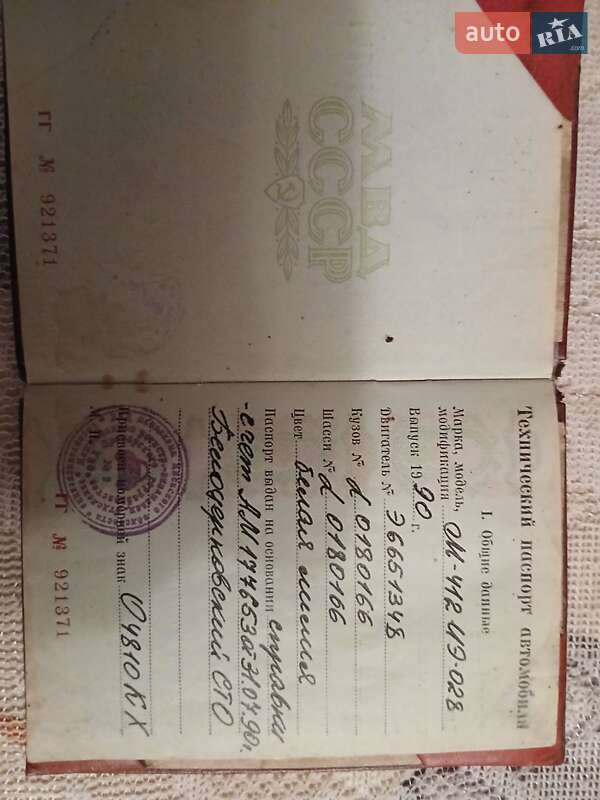 auto RIA .com
МВД
СССР
ГГ № 921371
Технический паспорт автомобиля
I. Общие данные
Марка, модель,
модификация М-412 ИЭ-028
Выпуск 1990 г.
Двигатель № Э6651348
Кузов № d 0180166
Шасси № d 0180166
Цвет белая
Паспорт выдан на основании справки
-счет АМ 177653 от 31.07.90г.
Белоцерковский СТО
знак 04810КХ
М. П.
ГГ № 921371